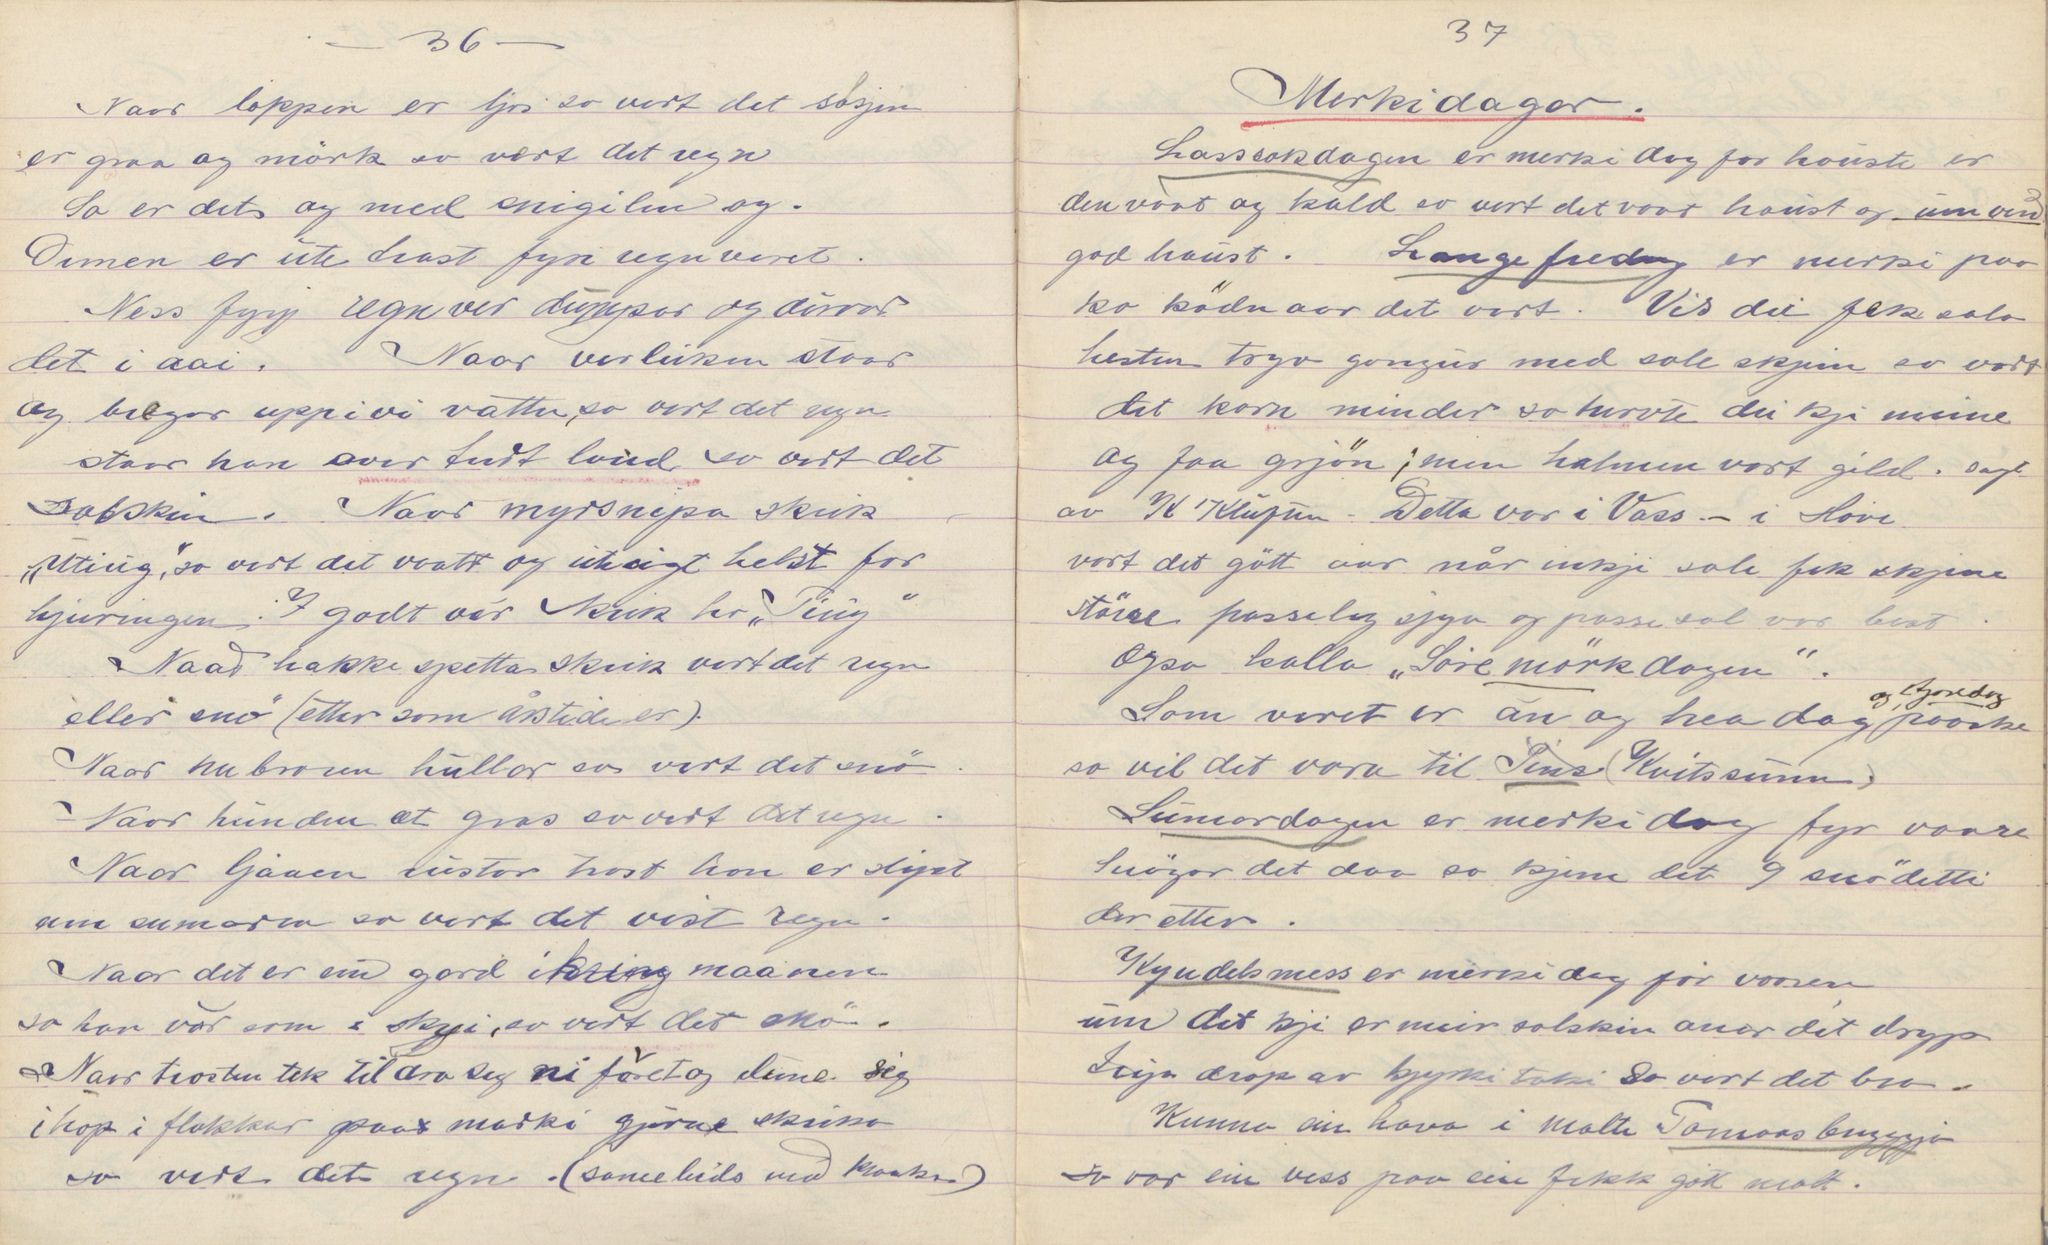 — 36 —
Naar loppen er ljos so vert det
er graa og mörk so vert det regn
So er dets og med snigilen og.
Ormen er ute trast fyre regnveret.
Ness fyrj regnver dumpar og durar
det i aai. Naar verliken staar
og brægar uppivi vatten, so vert det regn
staar han over turt land so vert det
solskin. Naar myrsnipa skrik
"Utiug", so vert det vaatt og uhaigt helst for
hjuringen. I godt vér skrik ho "Tiug"
Naar hakkespetta skrik vert det regn
eller snö (etter som årstide er).
Naar nubraren hullar so vert det snö.
Naar hunden et gras so vert det regn.
Naar ljaaen rustar trast han er slipt
um sumaren so vert det vist regn.
Naar det er ein gard ikring maanen
so han vår som i skyi, so vert det snö.
Naar trosten tek til dra seg ni före og slune seg
ihop i flokkar paa marki gjörne skrika
so vert det regn. (sameleids med kraaka)
37
Merkidagar.
Lassokdagen er merkidag for hauste er
den vaat og kald so vert det vaat haust og umvend
god haust. Langefredag er merki paa
ko ködn aar det vert. Vis dei fek sala
hesten tryo gongur med sole skjein so vart
det korn minder so turvte dei kji meine
og faa grjön; men halmen vart gild. sagt
av K Klupen - Detta var i Vass - i Hove
vart det gött aar når inkji sole fek skjine
större passeleg sjya og passe sol var best.
Ogso kalla "Sore mörk dagen".
Som veret er an og hea dag og tjoredag paaske
so vil det vara til Pins (Kvitssunn)
Sumardagen er merkidag fyr vaare
Snögar det daa so kjem det 9 snödetti
der etter.
Kyndelsmess er merkidag for vaaren
um det kji er meir solskin anar det dryp
triju drop av kyrkitaki so vert det bra.
Kunna ein hava i malte Tomaasbryggja
so var ein viss paa ein fekk gött malt.